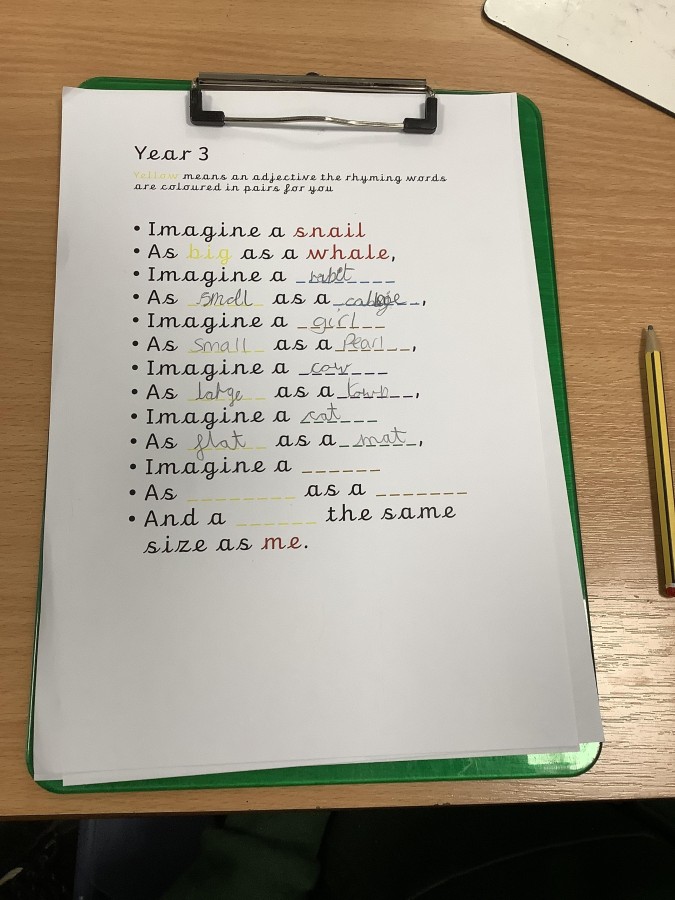 Year 3
Yellow means an adjective the rhyming words
are coloured in pairs for you
• Imagine a snail
• As big as a whale,
• Imagine a
• As small as a
• Imagine a girl
• As small as a Pearl,
• Imagine a cow
• As large as a town,
• Imagine a cat
• As flat as a mat,
• Imagine a ______
• As ________ as a _______
• And a ______ the same
size as me.